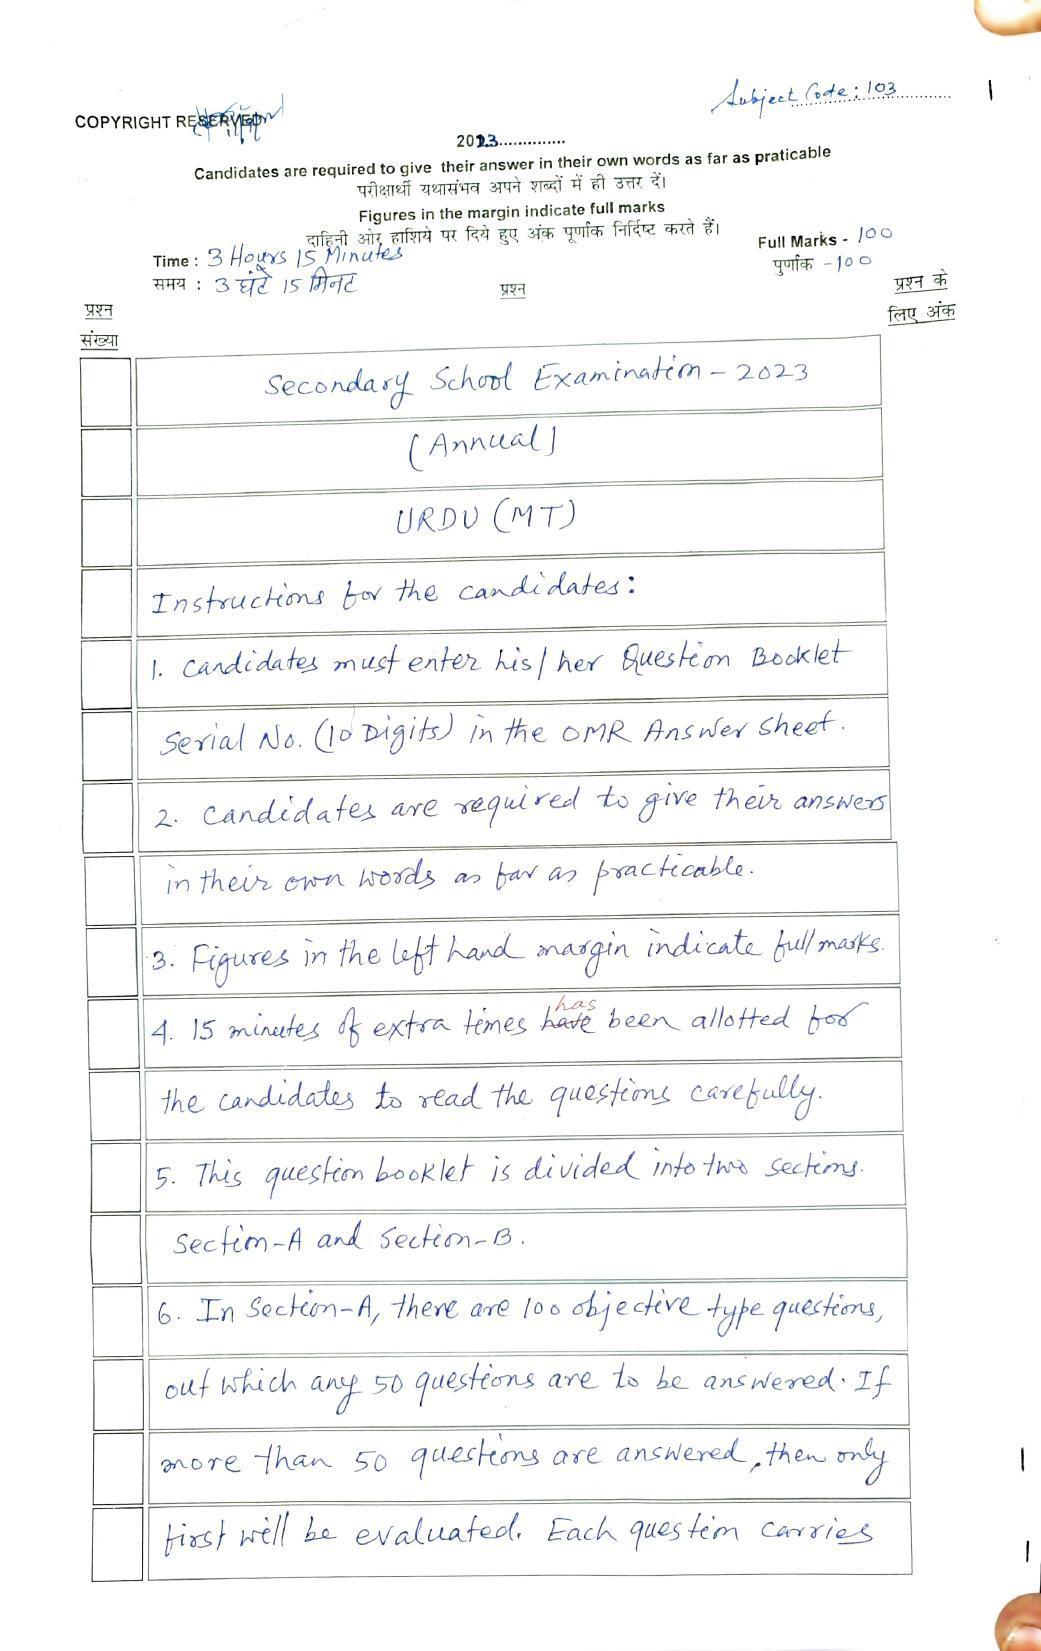 Subject Code: 103
COPYRIGHT RESERVED
2023..............
Candidates are required to give their answer in their own words as far as praticable
परीक्षार्थी यथासंभव अपने शब्दों में ही उत्तर दें।
Figures in the margin indicate full marks
दाहिनी ओर हाशिये पर दिये हुए अंक पूर्णांक निर्दिष्ट करते हैं।
Time : 3 Hours 15 Minutes
Full Marks - 100
समय : 3 घंटे 15 मिनट
पुर्णांक - 100
प्रश्न
प्रश्न के
लिए अंक
प्रश्न
संख्या
Secondary School Examination - 2023
(Annual)
URDU (MT)
Instructions for the candidates:
1. Candidates must enter his/her Question Booklet
Serial No. (10 Digits) in the OMR Answer Sheet.
2. Candidates are required to give their answers
in their own words as far as practicable.
3. Figures in the left hand margin indicate full marks.
4. 15 minutes of extra times has been allotted for
the candidates to read the questions carefully.
5. This question booklet is divided into two sections.
Section-A and Section-B.
6. In Section-A, there are 100 objective type questions,
out which any 50 questions are to be answered. If
more than 50 questions are answered, then only
first will be evaluated. Each question carries